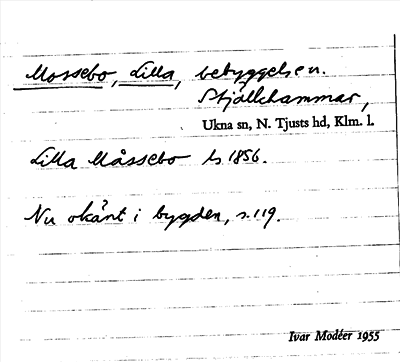 Mossebo, Lilla, bebyggelsen.
Stjälkhammar,
Ukna sn, N. Tjusts hd, Klm. l.
Lilla Måssebo ls 1856.
Nu okänt i bygden, s. 119.
Ivar Modéer 1955